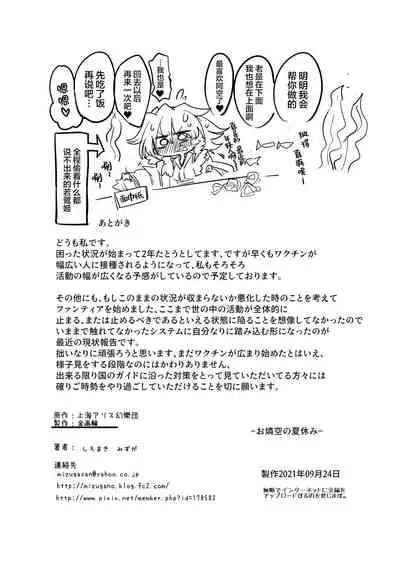 明明我会
帮你做的
老是在下面
我也想在上面啊
最喜欢阿空了♥
…我也是♥
回去以后
再来一次吧♥
先吃了饭
再说吧…
嗯嗯♥
全程偷看什么都
说不出来的若鹭姬
面巾纸
あとがき
どうも私です。
困った状況が始まって2年たとうとしてます、ですが早くもワクチンが
幅広い人に接種されるようになって、私もそろそろ
活動の幅が広くなる予感がしているので予定しております。
その他にも、もしこのままの状況が収まらないか悪化した時のことを考えて
ファンティアを始めました、ここまで世の中の活動が全体的に
止まる、または止めるべきであるといえる状態に陥ることを想像してなかったので
いままで触れてなかったシステムに自分なりに踏み込む形になったのが
最近の現状報告です。
拙いなりに頑張ろうと思います、まだワクチンが広まり始めたとはいえ、
様子見をする段階なのにはかわりありません、
出来る限り国のガイドに沿った対策をとって見ていただいてる方々には
確りご時勢をやり過ごしていただけることを切に願います。
原作:上海アリス幻樂団
製作:金画輪
著者: しろまき みずが
連絡先
mizugasan@yahoo.co.jp
http://mizugano.blog.fc2.com/
http://www.pixiv.net/member.php?id=178583
-お燐空の夏休み-
製作2021年09月24日
無断でインターネットに全編を
アップロードするのを禁じます。